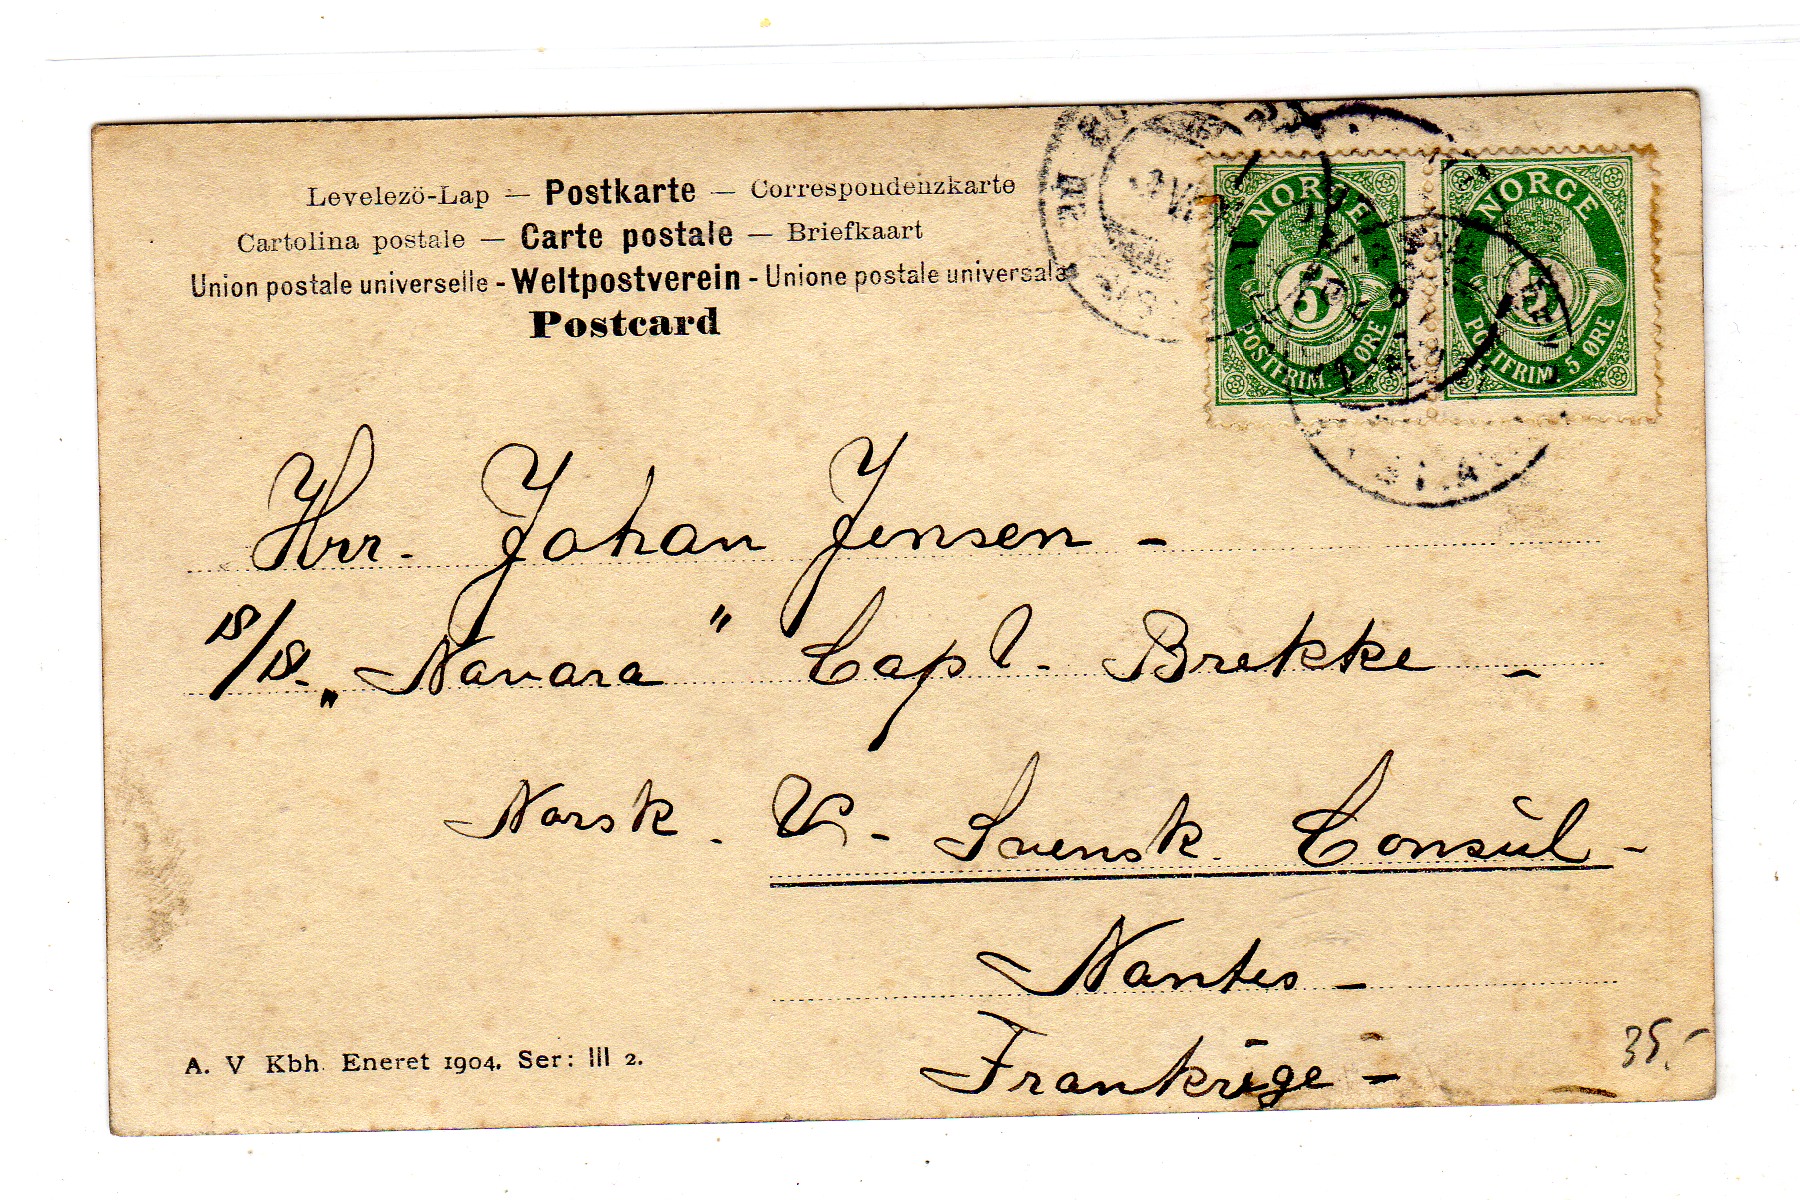 Levelezö-Lap — Postkarte — Correspondenzkarte
Cartolina postale — Carte postale — Briefkaart
Union postale universelle - Weltpostverein - Unione postale universale
Postcard
NORGE
5
POSTFRIM. 5 ØRE
NORGE
5
POSTFRIM. 5 ØRE
Hrr. Johan Jensen -
S/S. „Navara" Capt. Brekke -
Norsk. V. - Svensk. Consul -
Nantes -
Frankrige -
35.-
A. V Kbh. Eneret 1904. Ser: III 2.